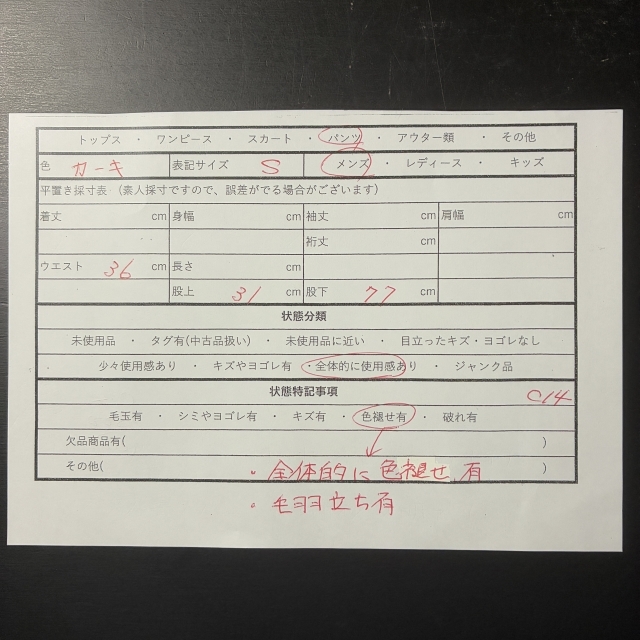 トップス ・ ワンピース ・ スカート ・ パンツ ・ アウター類 ・ その他
色 カーキ 表記サイズ S メンズ ・ レディース ・ キッズ
平置き採寸表 (素人採寸ですので、誤差がでる場合がございます)
着丈 cm 身幅 cm 袖丈 cm 肩幅 cm
裄丈 cm
ウエスト 36 cm 長さ cm
股上 31 cm 股下 77 cm
状態分類
未使用品 ・ タグ有(中古品扱い) ・ 未使用品に近い ・ 目立ったキズ・ヨゴレなし
少々使用感あり ・ キズやヨゴレ有 ・全体的に使用感あり ・ ジャンク品
状態特記事項 C14
毛玉有 ・ シミやヨゴレ有 ・ キズ有 ・ 色褪せ有 ・ 破れ有
欠品商品有( )
その他( ・全体的に色褪せ有 )
・毛羽立ち有